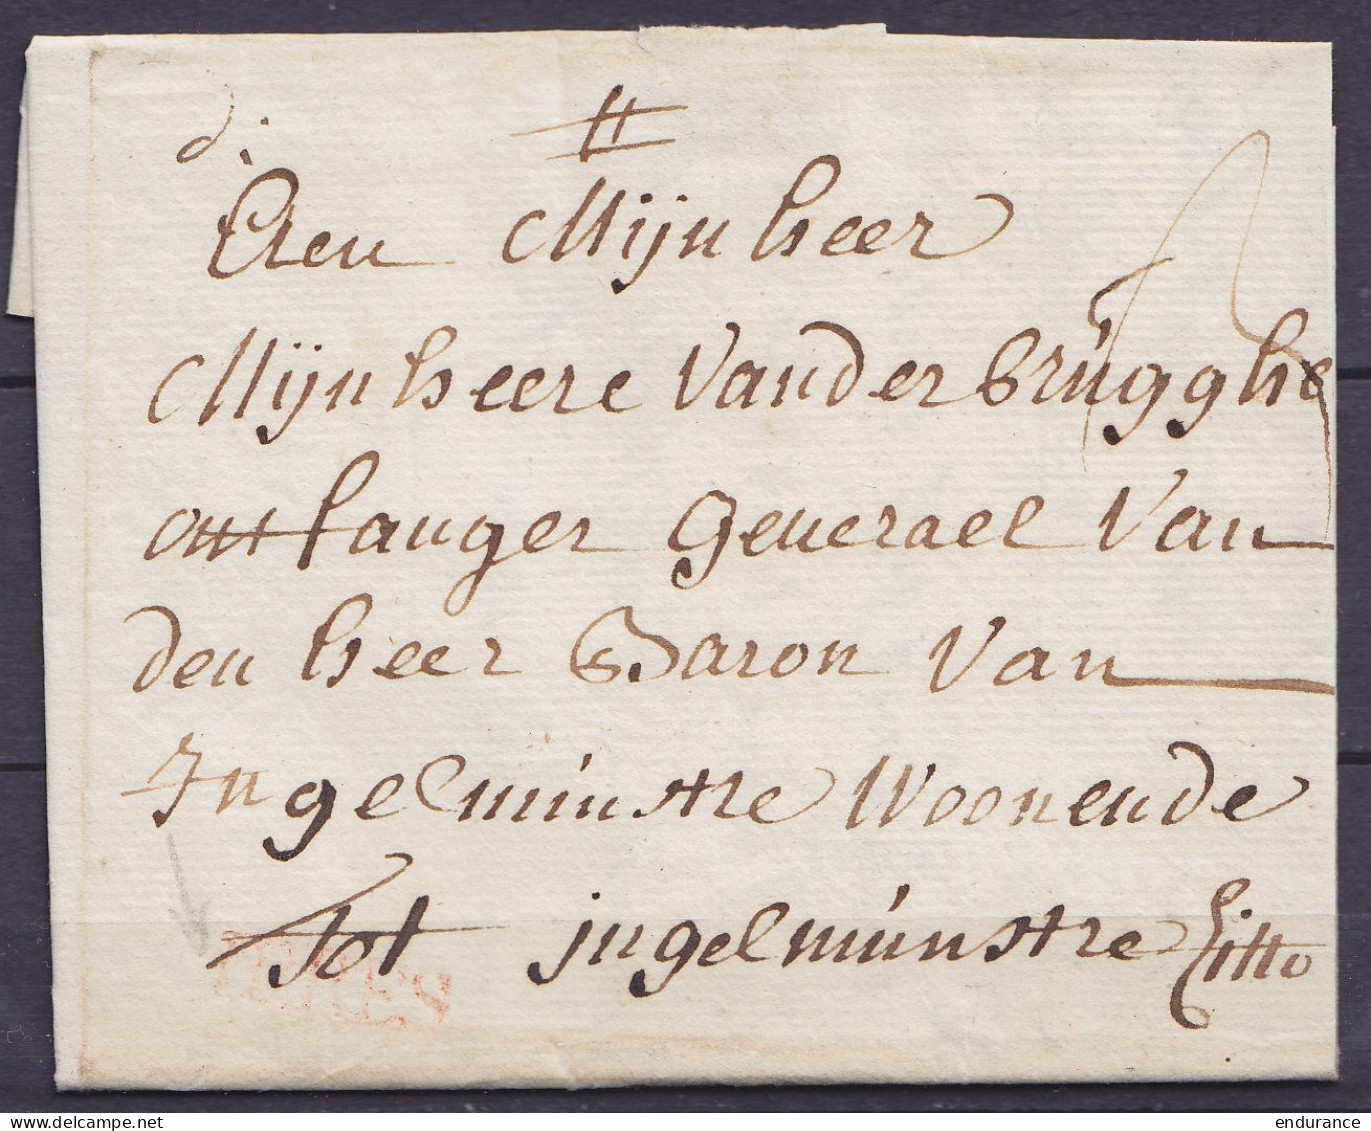 Eren Mijnheer
Mijnheere Vander brúgghe
ontfanger generael Van
den heer Baron Van
Ingelmúnstre Woonende
Tot ingelmúnstre Citto
YPRES
delcampe.net
endurance